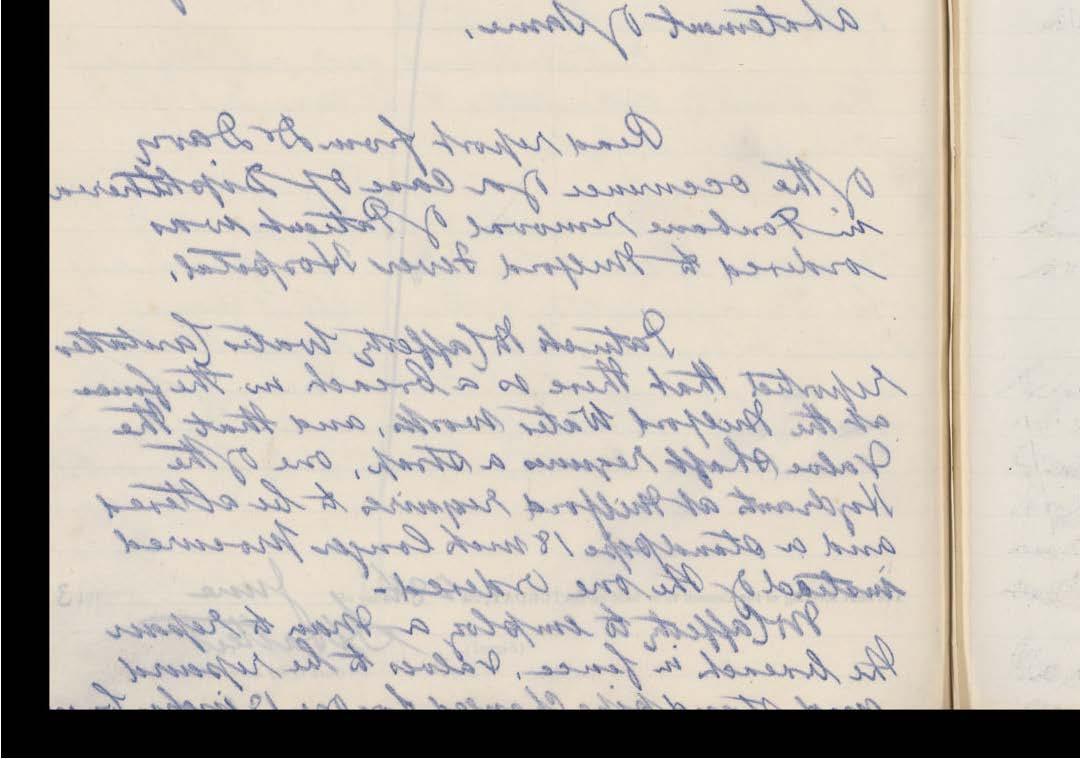 abatement of same.
Read report from Dr Davy
of the occurrence of a Case of Diphtheria
in removal of Patient was
ordered to Milford Fever Hospital.
Patrick McCafferty Water Caretaker
reported that there is a breach in the fence
at the Milford Water Works, and that the
Valve Shaft requires a strap, one of the
Hydrants at Milford requires to be altered
and a standpipe 18 inch longer procured
instead of the one ordered.
McCafferty to employ a man to repair
the breach in fence, valves to be repaired
and standpipe
June